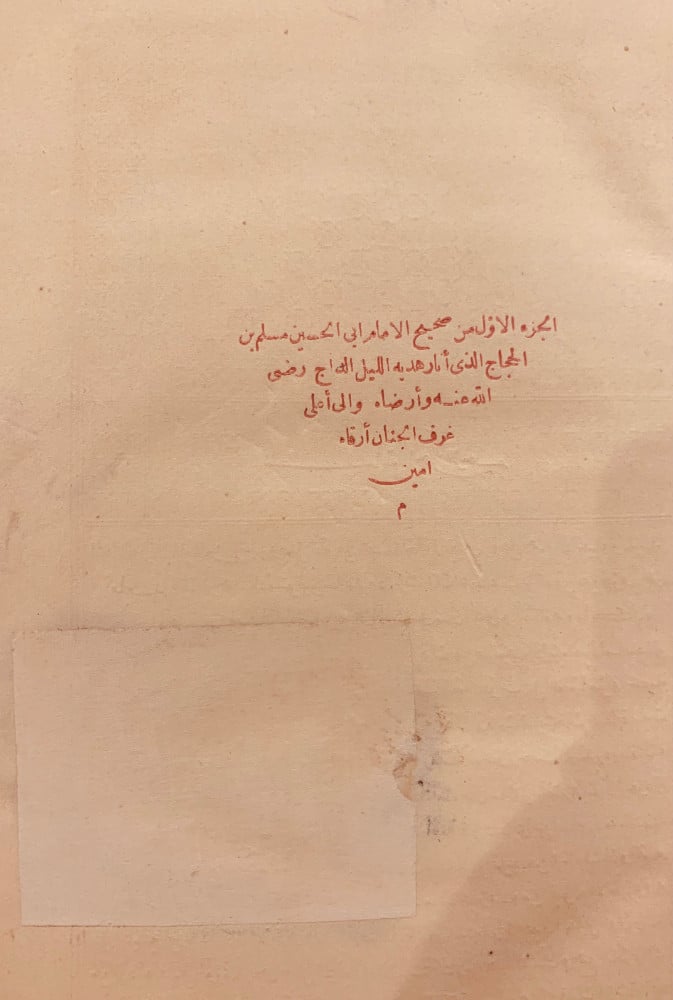 الجزء الاول من صحيح الامام ابي الحسين مسلم بن
الحجاج الذى أنار هديه الليل الداج رضى
الله عنه وأرضاه والى أعلى
غرف الجنان أرقاه
امين
م